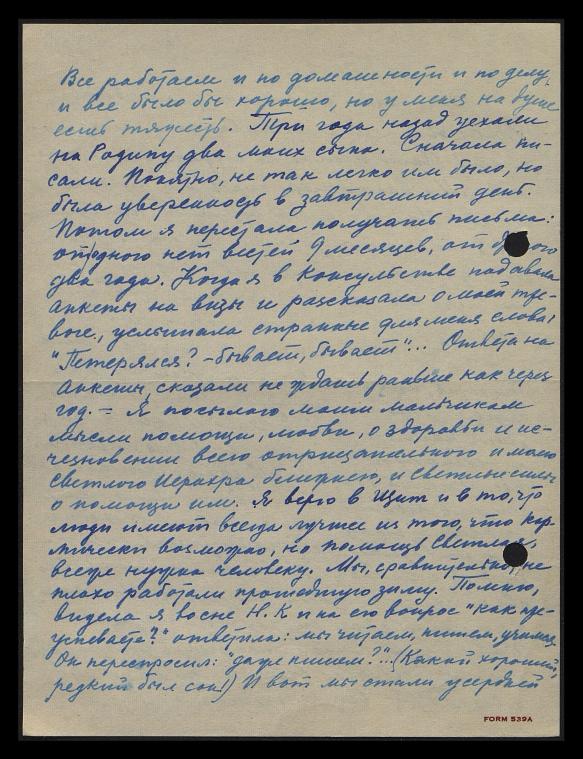 Все работаем и по домашности и по делу,
и все было бы хорошо, но у меня на душе
есть тяжесть. Три года назад уехали
на Родину два моих сына. Сначала пи-
сали. Понятно, не так легко им было, но
была уверенность в завтрашний день.
Потом я перестала получать письма:
от одного нет вестей 9 месяцев, от
два года. Когда я в Консульстве подавала
анкеты на визы и рассказала о моей тре-
воге, услышала странные для меня слова:
"Потерялся? - бывает, бывает"... Ответа на
анкеты, сказали не ждать раньше как через
год. - Я посылаю моим мальчикам
мысли помощи, любви, о здоровьи и ис-
чезновении всего отрицательного и молю
Светлого Иерарха ближнего, и Светлые силы
о помощи им. Я верю в Щит и в то, что
люди имеют всегда лучшее из того, что кар-
мически возможно, но помощь Светлая,
всегда нужна человеку. Мы, сравнительно, не
плохо работали прошедшую зиму. Помню,
видела я во сне Н.К и на его вопрос "как пре-
успеваете?" ответила: мы читаем, пишем, учимся
Он переспросил: "даже пишем?"... (Какой хороший,
редкий был сон!) И вот мы стали усердней
FORM 539A